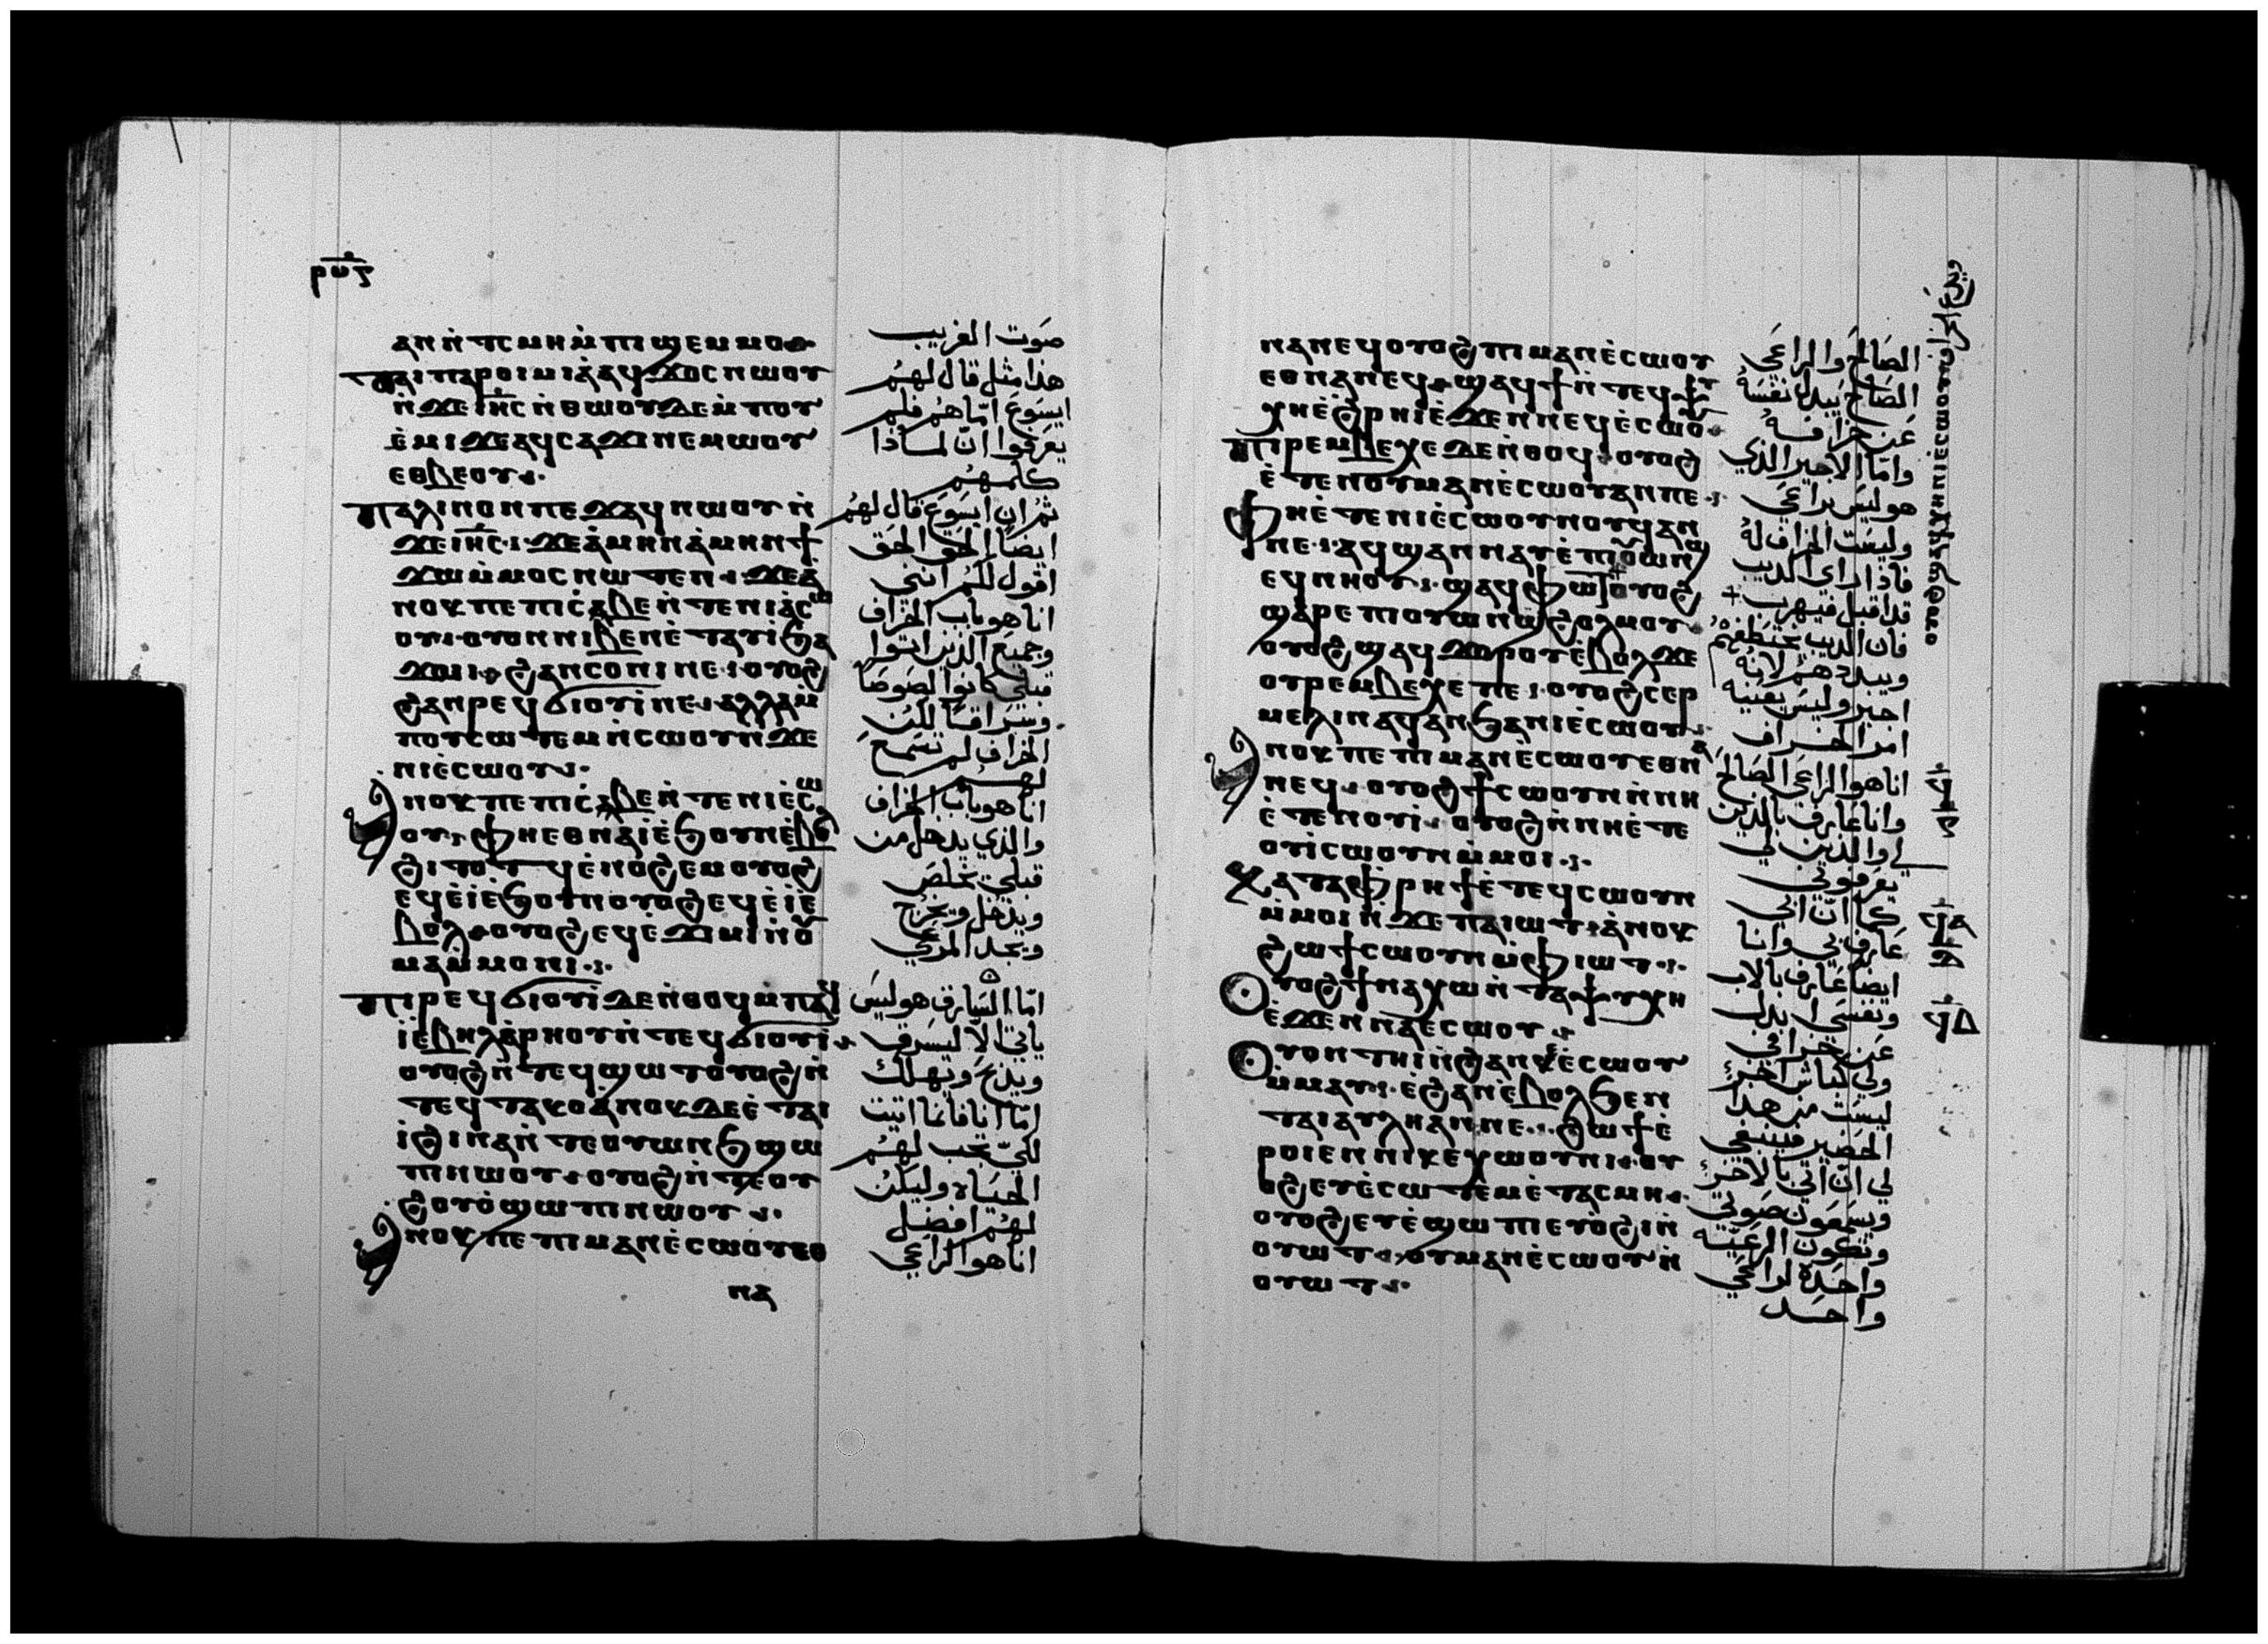 ⲣⲡ̅ⲍ
ⲁⲛ ⲛ̀ⲧⲥⲙⲏ ⲙ̀ⲡⲓϣⲉⲙⲙⲟ
ⲧⲁⲓⲡⲁⲣⲟⲓⲙⲓⲁ̀ ⲁϥϫⲟⲥ ⲛⲱⲟⲩ
ⲛ̀ϫⲉ ⲓⲏ̅ⲥ ⲛ̀ⲑⲱⲟⲩ ⲇⲉ ⲙ̀ⲡⲟⲩ
ⲉ̀ⲙⲓ ϫⲉ ⲁϥⲥⲁϫⲓ ⲛⲉⲙⲱⲟⲩ
ⲉⲑⲃⲉ ⲟⲩ
ⲡⲁⲗⲓⲛ ⲟⲛ ⲡⲉϫⲁϥ ⲛⲱⲟⲩ ⲛ̀
ϫⲉ ⲓⲏ̅ⲥ ϫⲉ ⲁ̀ⲙⲏⲛ ⲁ̀ⲙⲏⲛ ϯ
ϫⲱ ⲙ̀ⲙⲟⲥ ⲛⲱⲧⲉⲛ ϫⲉ ⲁ̀
ⲛⲟⲕ ⲡⲉ ⲡⲓⲥ̀ⲃⲉ ⲛ̀ⲧⲉ ⲛⲓⲉ̀ⲥⲱ
ⲟⲩ ⲟⲩⲟⲛ ⲛⲓⲃⲉⲛ ⲉ̀ⲧⲁⲩⲓ̀ ϧⲁ
ϫⲱⲓ ϩⲁⲛⲥⲟⲛⲓ ⲛⲉ ⲟⲩⲟϩ
ϩⲁⲛⲣⲉϥϭⲓⲟⲩⲓ̀ ⲛⲉ ⲁⲗⲗⲁ ⲙ̀
ⲡⲟⲩⲥⲱⲧⲉⲙ ⲛ̀ⲥⲱⲟⲩ ⲛ̀ϫⲉ
ⲛⲓⲉ̀ⲥⲱⲟⲩ
ⲁⲛⲟⲕ ⲡⲉ ⲡⲓⲥ̀ⲃⲉ ⲛ̀ⲧⲉ ⲛⲓⲉ̀ⲥⲱ
ⲟⲩ ⲫⲏ ⲉⲑⲛⲁⲓ̀ ⲉ̀ϧⲟⲩⲛ ⲉ̀ⲃⲟⲗ
ϩⲓⲧⲟⲧ ϥⲉ̀ⲛⲟϩⲉⲙ ⲟⲩⲟϩ
ⲉϥⲉ̀ⲓ̀ ⲉ̀ϧⲟⲩⲛ ⲟⲩⲟϩ ⲉϥⲉ̀ⲓ̀ ⲉ̀
ⲃⲟⲗ ⲟⲩⲟϩ ⲉϥⲉ̀ϫⲓⲙⲓ ⲛ̀ⲟⲩ
ⲙⲁⲙ̀ⲙⲟⲛⲓ
ⲡⲓⲣⲉϥϭⲓⲟⲩⲓ̀ ⲇⲉ ⲛ̀ⲑⲟϥ ⲙ̀ⲡⲁϥ
ⲓ̀ ⲉ̀ⲃⲏⲗ ⲁ̀ⲣⲏⲟⲩ ⲛ̀ⲧⲉϥϭⲓⲟⲩⲓ̀
ⲟⲩⲟϩ ⲛ̀ⲧⲉϥϣⲱⲧ ⲟⲩⲟϩ ⲛ̀
ⲧⲉϥⲧⲁⲕⲟ ⲁ̀ⲛⲟⲕ ⲇⲉ ⲉ̀ⲧⲁⲓ
ⲓ̀ ϩⲓⲛⲁ ⲛ̀ⲧⲉ ⲟⲩⲱⲛϧ ϣⲱ
ⲡⲓ ⲛⲱⲟⲩ ⲟⲩⲟϩ ⲛ̀ⲧⲉ ⲟⲩ
ϩⲟⲩⲟ̀ ϣⲱⲡⲓ ⲛⲱⲟⲩ
ⲁⲛⲟⲕ ⲡⲉ ⲡⲓⲙⲁⲛⲉ̀ⲥⲱⲟⲩ ⲉⲑ
ⲛⲁ
صوت الغريب
هذا مثل قال لهم
ايسوع امّا هم فلم
يعرفوا ان لماذا
كلمهم
ثم ان ايسوع قال لهم
ايضًا الحق الحق
اقول لكم انني
انا هو باب الخراف
وجميع الذين اتوا
قبلي كانوا لصوصًا
وسراقًا لكن
الخراف لم تسمع
لهم
انا هو باب الخراف
والذي يدخل من
قبلي يخلص
ويدخل ويخرج
ويجد المرعي
امّا السارق هو ليس
ياتي الّا ليسرق
ويذبح ويهلك
امّا انا فانما اتيت
لكي تجب لهم
الحياه وليكن
لهم افضل
انا هو الراعي
ⲛⲁⲛⲉϥ ⲟⲩⲟϩ ⲡⲓⲙⲁⲛⲉ̀ⲥⲱⲟⲩ
ⲉⲑⲛⲁⲛⲉϥ ϣⲁϥϯ ⲛ̀ⲧⲉϥⲯⲩ
ⲭⲏ ⲉ̀ϩⲣⲏⲓ ⲉ̀ϫⲉⲛ ⲛⲉϥⲉ̀ⲥⲱⲟⲩ
ⲡⲓⲣⲉⲙⲃⲉⲭⲉ ⲇⲉ ⲛ̀ⲑⲟϥ ⲟⲩⲟϩ
ⲉ̀ⲧⲉ ⲛⲟⲩⲙⲁⲛⲉ̀ⲥⲱⲟⲩ ⲁⲛ ⲡⲉ
ⲫⲏ ⲉ̀ⲧⲉ ⲛⲓⲉ̀ⲥⲱⲟⲩ ⲛⲟⲩϥ ⲁⲛ
ⲛⲉ ⲁϥϣⲁⲛⲛⲁⲩ ⲉ̀ⲡⲓⲟⲩⲱⲛϣ
ⲉϥⲛⲏⲟⲩ ϣⲁϥⲫⲱⲧ ⲟⲩⲟϩ
ϣⲁⲣⲉ ⲡⲓⲟⲩⲱⲛϣ ϩⲟⲗⲙⲟⲩ
ⲟⲩⲟϩ ϣⲁϥϫⲟⲣⲟⲩ ⲉ̀ⲃⲟⲗ ϫⲉ
ⲟⲩⲣⲉⲙⲃⲉⲭⲉ ⲡⲉ ⲟⲩⲟϩ ⲥⲉⲣ
ⲙⲉⲗⲓⲛ ⲁϥ ⲁⲛ ϧⲁ ⲛⲓⲉ̀ⲥⲱⲟⲩ
ⲁⲛⲟⲕ ⲡⲉ ⲡⲓⲙⲁⲛⲉ̀ⲥⲱⲟⲩ ⲉⲑⲛⲁ
ⲛⲉϥ ⲟⲩⲟϩ ϯⲥⲱⲟⲩⲛ ⲛ̀ⲛⲏ
ⲉ̀ⲧⲉ ⲛⲟⲩⲓ̀ ⲟⲩⲟϩ ⲛ̀ⲛⲏ ⲉ̀ⲧⲉ
ⲟⲩⲓ̀ ⲥⲱⲟⲩⲛ ⲙ̀ⲙⲟⲓ
ⲕⲁⲧⲁ ⲫⲣⲏϯ ⲉ̀ⲧⲉϥⲥⲱⲟⲩⲛ
ⲙ̀ⲙⲟⲓ ⲛ̀ϫⲉ ⲡⲁⲓⲱⲧ ⲁ̀ⲛⲟⲕ
ϩⲱ ϯⲥⲱⲟⲩⲛ ⲙ̀ⲫⲓⲱⲧ
ⲟⲩⲟϩ ϯⲛⲁⲭⲱ ⲛ̀ⲧⲁⲯⲩⲭⲏ
ⲉ̀ϫⲉⲛ ⲛⲁⲉⲥⲱⲟⲩ
ⲟⲩⲟⲛ ⲧⲏⲓ ⲛ̀ϩⲁⲛⲕⲉⲉ̀ⲥⲱⲟⲩ
ⲙ̀ⲙⲁⲩ ⲉ̀ϩⲁⲛⲉ̀ⲃⲟⲗ ϧⲉⲛ
ⲧⲁⲓⲁⲩⲗⲏ ⲁⲛ ⲛⲉ ϩⲱϯ ⲉ̀
ⲣⲟⲓ ⲉⲛ ⲛⲓⲕⲉⲭⲱⲟⲩⲛⲓ ⲟⲩ
ⲟϩ ⲉⲩⲉ̀ⲥⲱⲧⲉⲙ ⲉ̀ⲧⲁⲥⲙⲏ
ⲟⲩⲟϩ ⲉⲩⲉ̀ϣⲱⲡⲓ ⲉⲩⲟ̀ϩⲓ ⲛ̀
ⲟⲩⲱⲧ ⲟⲩⲙⲁⲛⲉ̀ⲥⲱⲟⲩ ⲛ̀
ⲟⲩⲱⲧ
الصالح والراعي
الصالح يبدل نفسه
عن خرافه
وامّا الاجير الذي
هو ليس براعي
وليست الخراف له
فاذا راى الديب
قد اقبل فيهرب
فان الديب يختطفهم
ويبددهم لانه
اجير وليس يعنيه
امر الخراف
انا هو الراعي الصالح
وانا عارف بالدين
لي والدين لي
يعرفوني
كما انّ ابي
عارف بي وانا
ايضا عارف بالاب
ونفسي ابدل
عن خرافي
ولي كباش اخر
ليست من هذا
الحضير فينبغي
لي ان اتي بالاخر
ويسمعون صوتي
وتكون الرعيه
واحده لراعي
واحد
ϥ̅
ϥⲁ
ϥⲇ